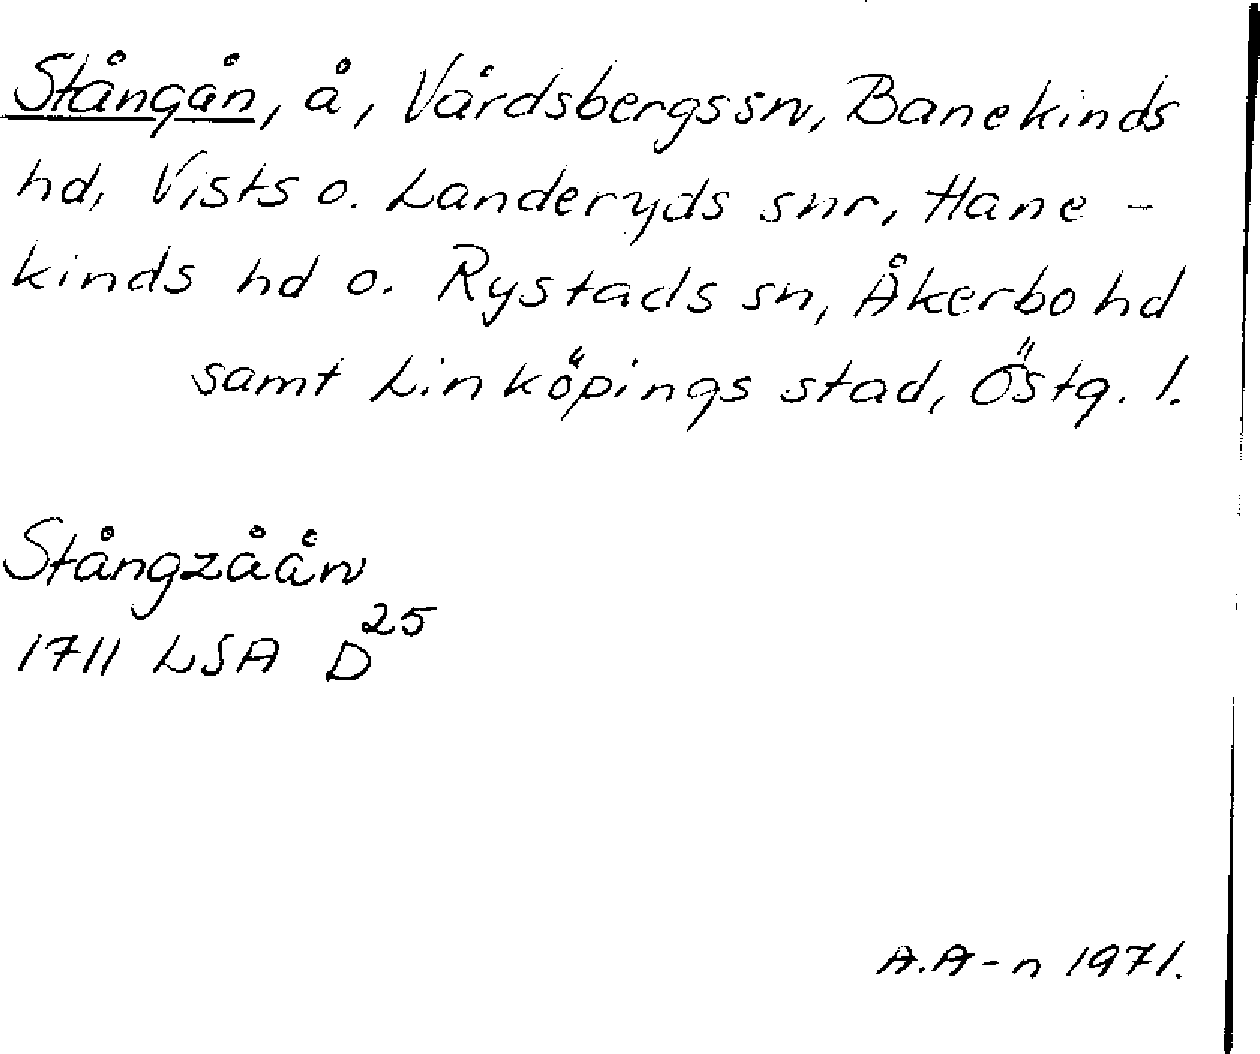 Stångån, å, Vårdsbergs sn, Banekinds
hd, Vists o. Landeryds snr, Hane-
kinds hd o. Rystads sn, Åkerbo hd
samt Linköpings stad, Östg. l.
Stångzåån
1711 LSA D25
A.A-n 1971.